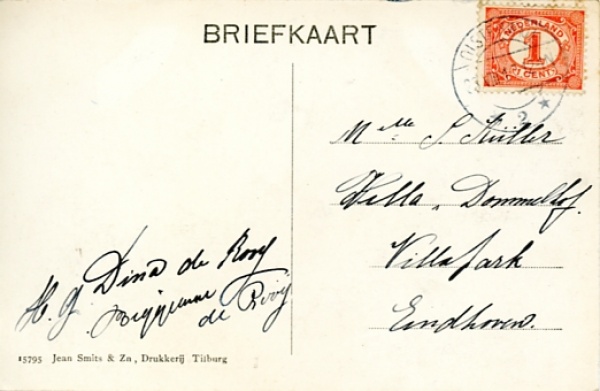 BRIEFKAART
NEDERLAND
1
1 CENT
OIST
2
Mlle S. Küller
Villa „Dommelhof.
Villapark
Eindhoven.
H. g. Dina de Rooy
de Rooij
15795 Jean Smits & Zn, Drukkerij Tilburg